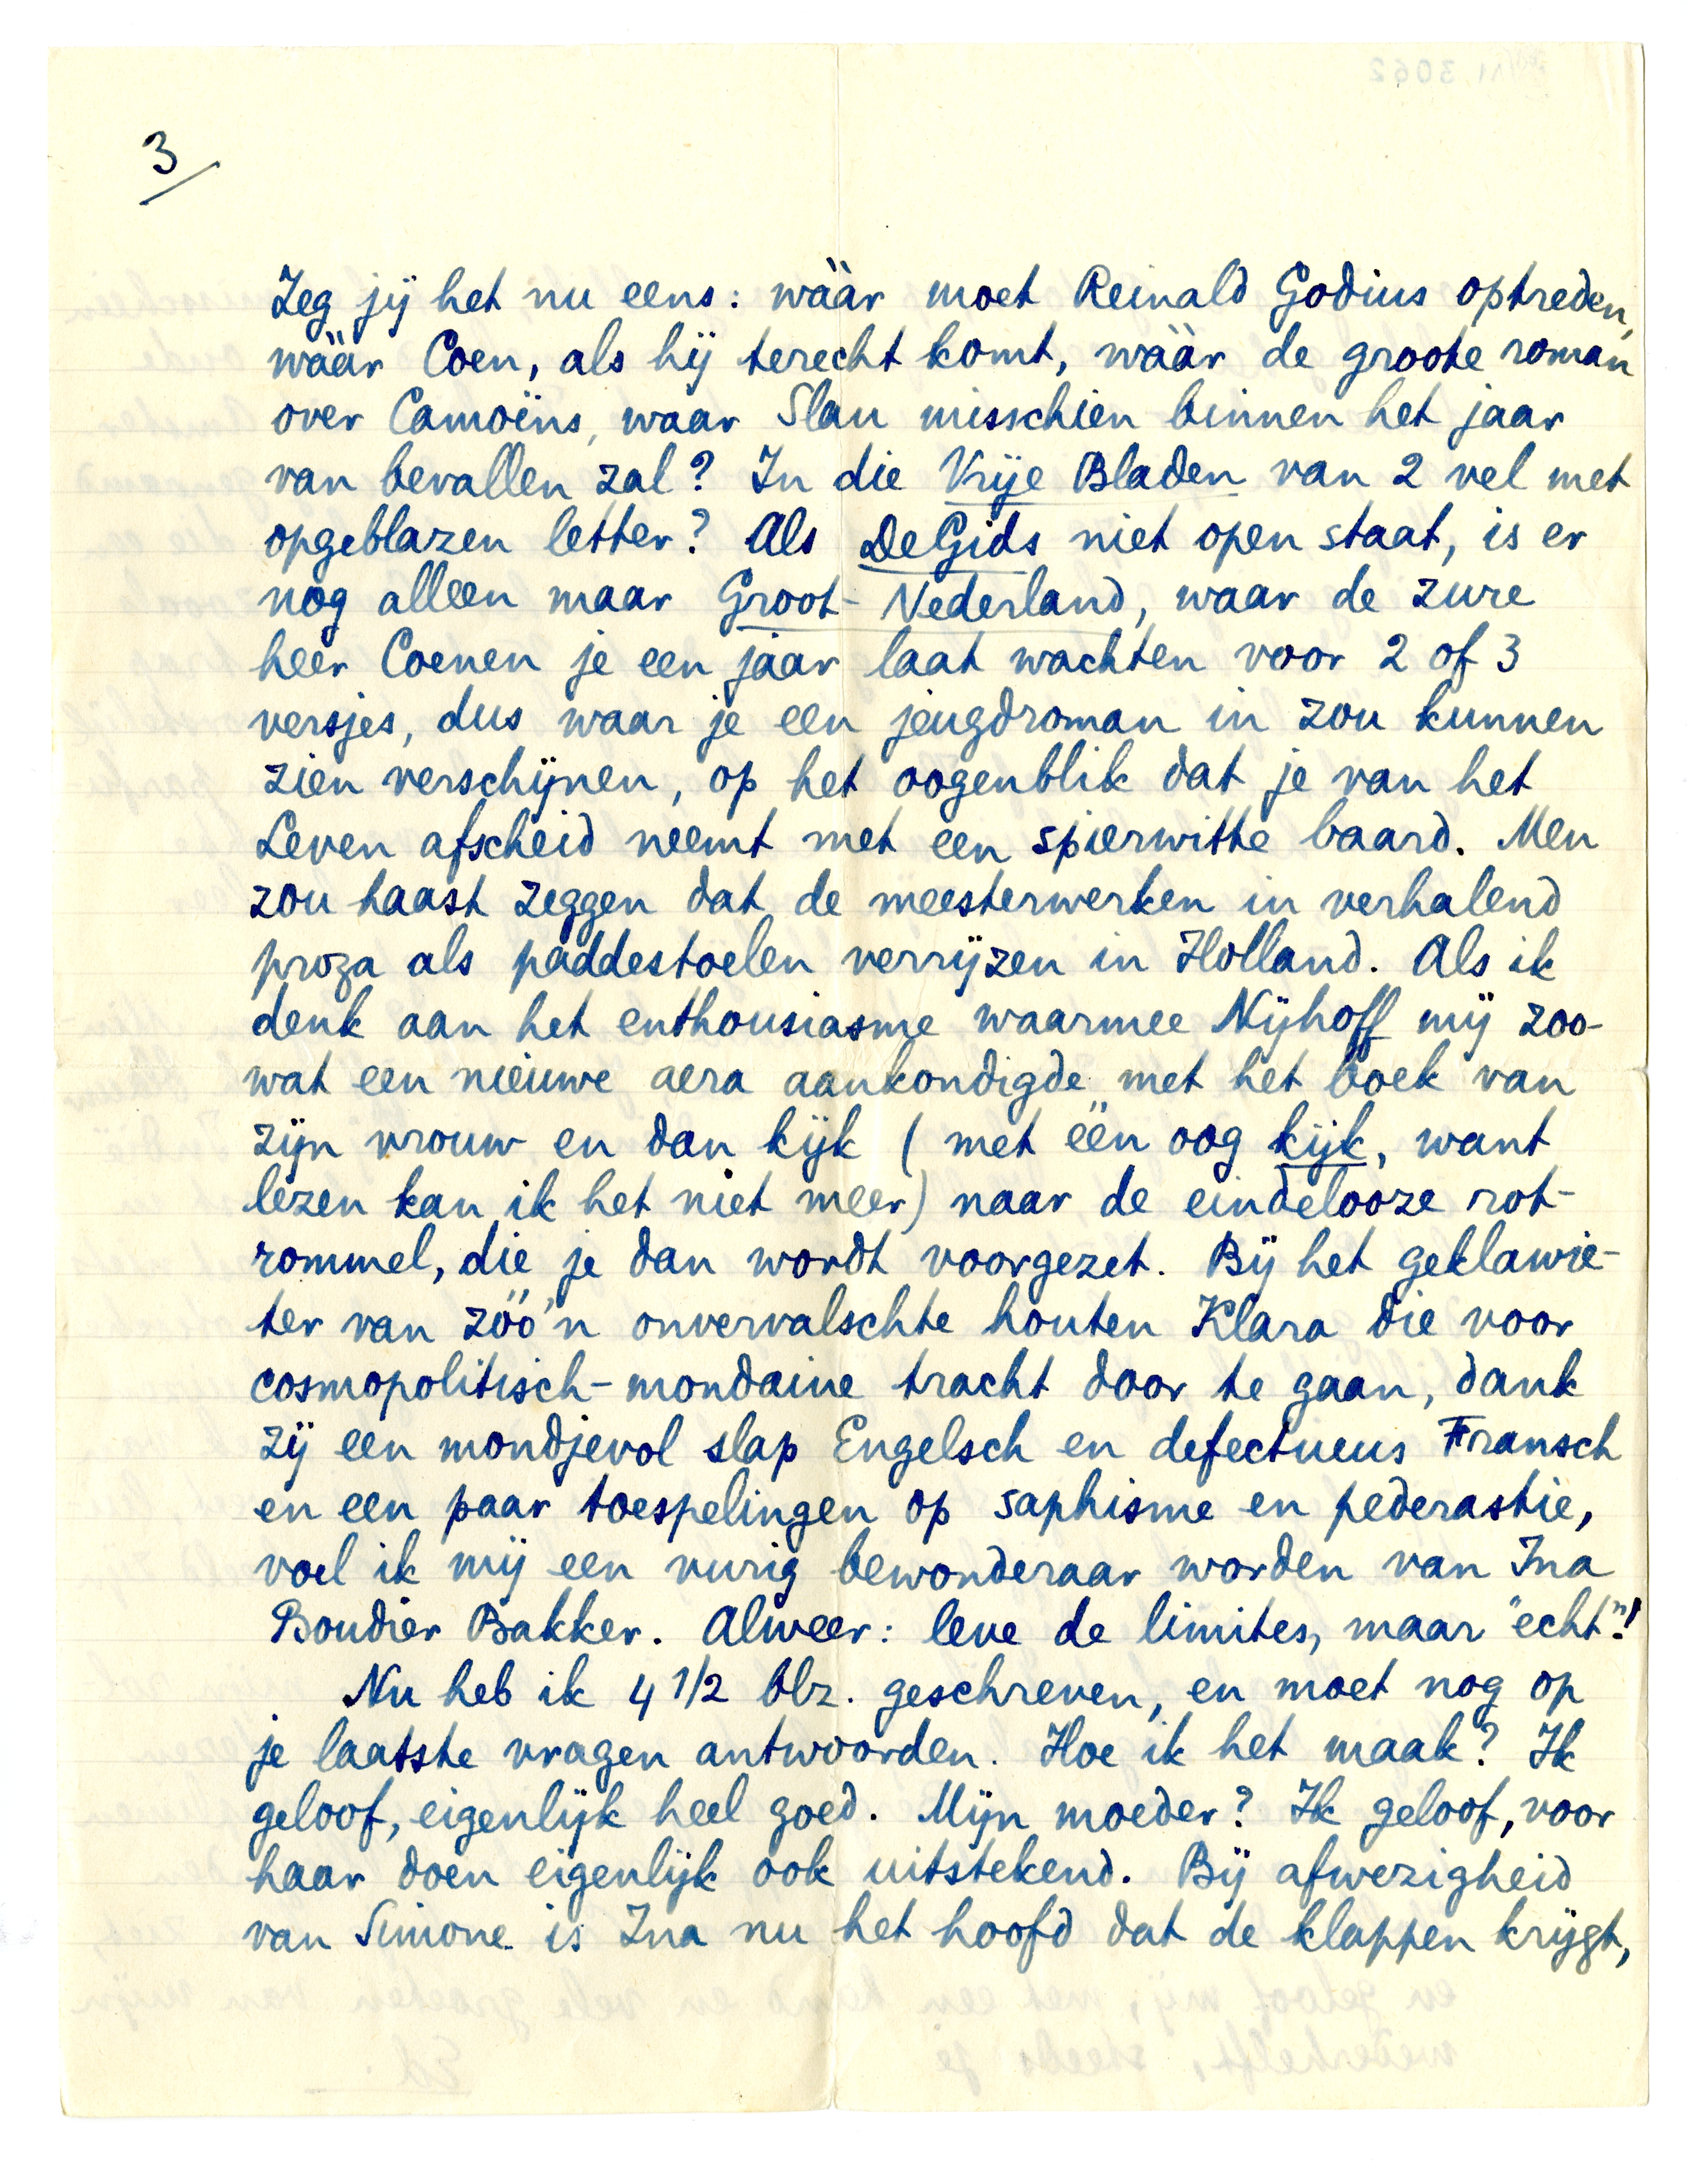 3
Zeg jij het nu eens: wààr moet Reinald Godius optreden,
wààr Coen, als hij terecht komt, wààr de groote roman
over Camoëns, waar Slau misschien binnen het jaar
van bevallen zal? In die Vrije Bladen van 2 vel met
opgeblazen letter? Als De Gids niet open staat, is er
nog alleen maar Groot-Nederland, waar de zure
heer Coenen je een jaar laat wachten voor 2 of 3
versjes, dus waar je een jeugdroman in zou kunnen
zien verschijnen, op het oogenblik dat je van het
Leven afscheid neemt met een spierwitte baard. Men
zou haast zeggen dat de meesterwerken in verhalend
proza als paddestoelen verrijzen in Holland. Als ik
denk aan het enthousiasme waarmee Nijhoff mij zoo-
wat een nieuwe aera aankondigde met het boek van
zijn vrouw en dan kijk (met één oog kijk, want
lezen kan ik het niet meer) naar de eindelooze rot-
rommel, die je dan wordt voorgezet. Bij het geklawie-
ter van zóó'n onvervalschte houten Klara die voor
cosmopolitisch-mondaine tracht door te gaan, dank
zij een mondjevol slap Engelsch en defectueus Fransch
en een paar toespelingen op saphisme en pederastie,
voel ik mij een vurig bewonderaar worden van Ina
Boudier Bakker. Alweer: leve de limites, maar "echt"!
Nu heb ik 4 1/2 blz. geschreven, en moet nog op
je laatste vragen antwoorden. Hoe ik het maak? Ik
geloof, eigenlijk heel goed. Mijn moeder? Ik geloof, voor
haar doen eigenlijk ook uitstekend. Bij afwezigheid
van Simone is Ina nu het hoofd dat de klappen krijgt,